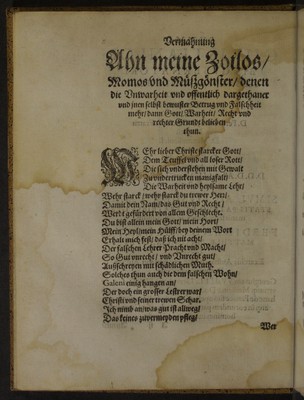 Vermahnung
Ahn meine Zoilos/
Momos vnd Müßgönster/ denen
die Vnwarheit vnd offentlich dargethaner
vnd jnen selbst bewuster Betrug vnd Falschheit
mehr/ dann Gott/ Warheit/ Recht vnd
rechter Grundt belieben
thun.
MEhr lieber Christe starcker Gott/
Dem Teuffel vnd all loser Rott/
Die sich vnderstehen mit Gewalt
Zu vndertrucken manigfalt/
Die Warheit vnd heylsame Lehr/
Wehr starck/ wehr starck du trewer Herr/
Damit dein Nam/ das Gut vnd Recht/
Werde gefürdert von allem Geschlecht.
Du bist allein mein Gott/ mein Hort
Mein Heyl/ mein Hülff/ bey deinem Wort
Erhalt mich fest/ daß ich nit acht/
Der falschen Lehrer Pracht vnd Macht/
So Gut vnrecht/ vnd Vnrecht gut/
Außschreyen mit schädlichem Muth.
Solches thun auch die dem falschen Wohn/
Galeni einig hangen an/
Der doch ein grosser Lesterer war/
Christi vnd seiner trewen Schar.
Das keines zuvermeyden pfleg/
Wer